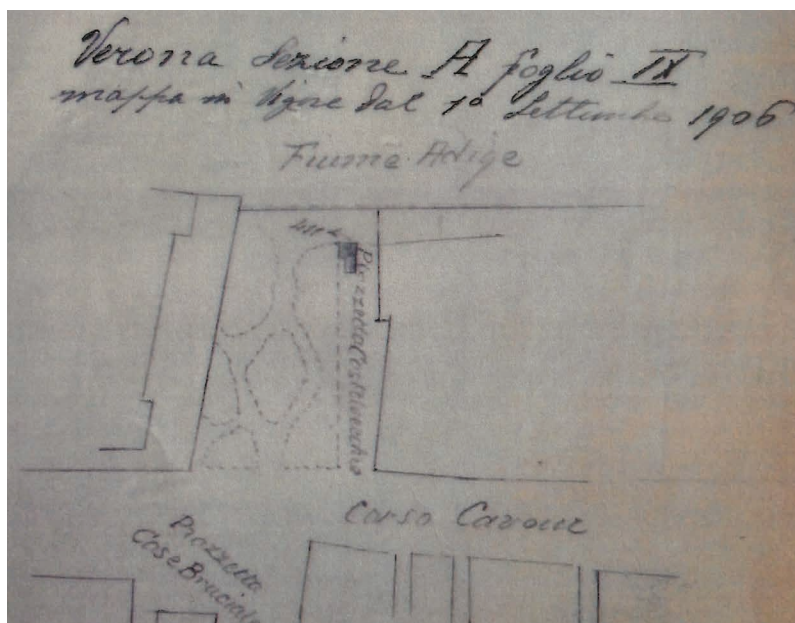 Verona Sezione A foglio IX
mappa in Vigore dal 1º Settembre 1906
Fiume Adige
Piazzetta Castelvecchio
Corso Cavour
Piazzetta
Case Bruciate